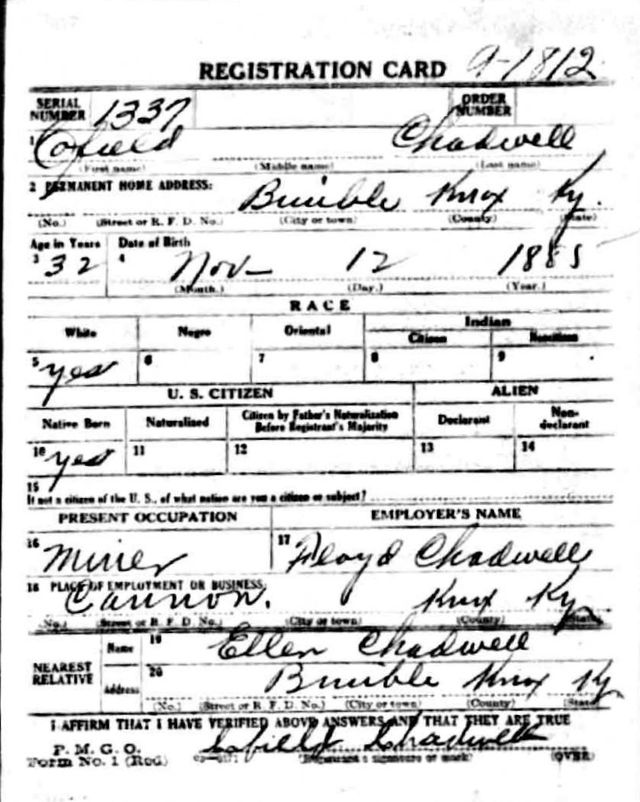 REGISTRATION CARD 9-1812
SERIAL NUMBER 1337 ORDER NUMBER
1 Cofield Chadwell
(First name) (Middle name) (Last name)
2 PERMANENT HOME ADDRESS: Bimble Knox Ky.
(No.) (Street or R. F. D. No.) (City or town) (County) (State)
Age in Years Date of Birth
3 32 4 Nov- 12 1885
(Month.) (Day.) (Year.)
RACE
White Negro Oriental Indian
Citizen Noncitizen
5 yes 6 7 8 9
U. S. CITIZEN ALIEN
Native Born Naturalized Citizen by Father's Naturalization Before Registrant's Majority Declarant Non-declarant
10 yes 11 12 13 14
15
If not a citizen of the U. S., of what nation are you a citizen or subject?
PRESENT OCCUPATION EMPLOYER'S NAME
16 Miner 17 Floyd Chadwell
18 PLACE OF EMPLOYMENT OR BUSINESS
Cannon. Knox Ky
(No.) (Street or R. F. D. No.) (City or town) (County) (State)
NEAREST RELATIVE Name 19 Ellen Chadwell
Address 20 Bimble Knox Ky
(No.) (Street or R. F. D. No.) (City or town) (County) (State)
I AFFIRM THAT I HAVE VERIFIED ABOVE ANSWERS AND THAT THEY ARE TRUE
P. M. G. O.
Form No. 1 (Red) Cofield Chadwell
(Registrant's signature or mark) (OVER)